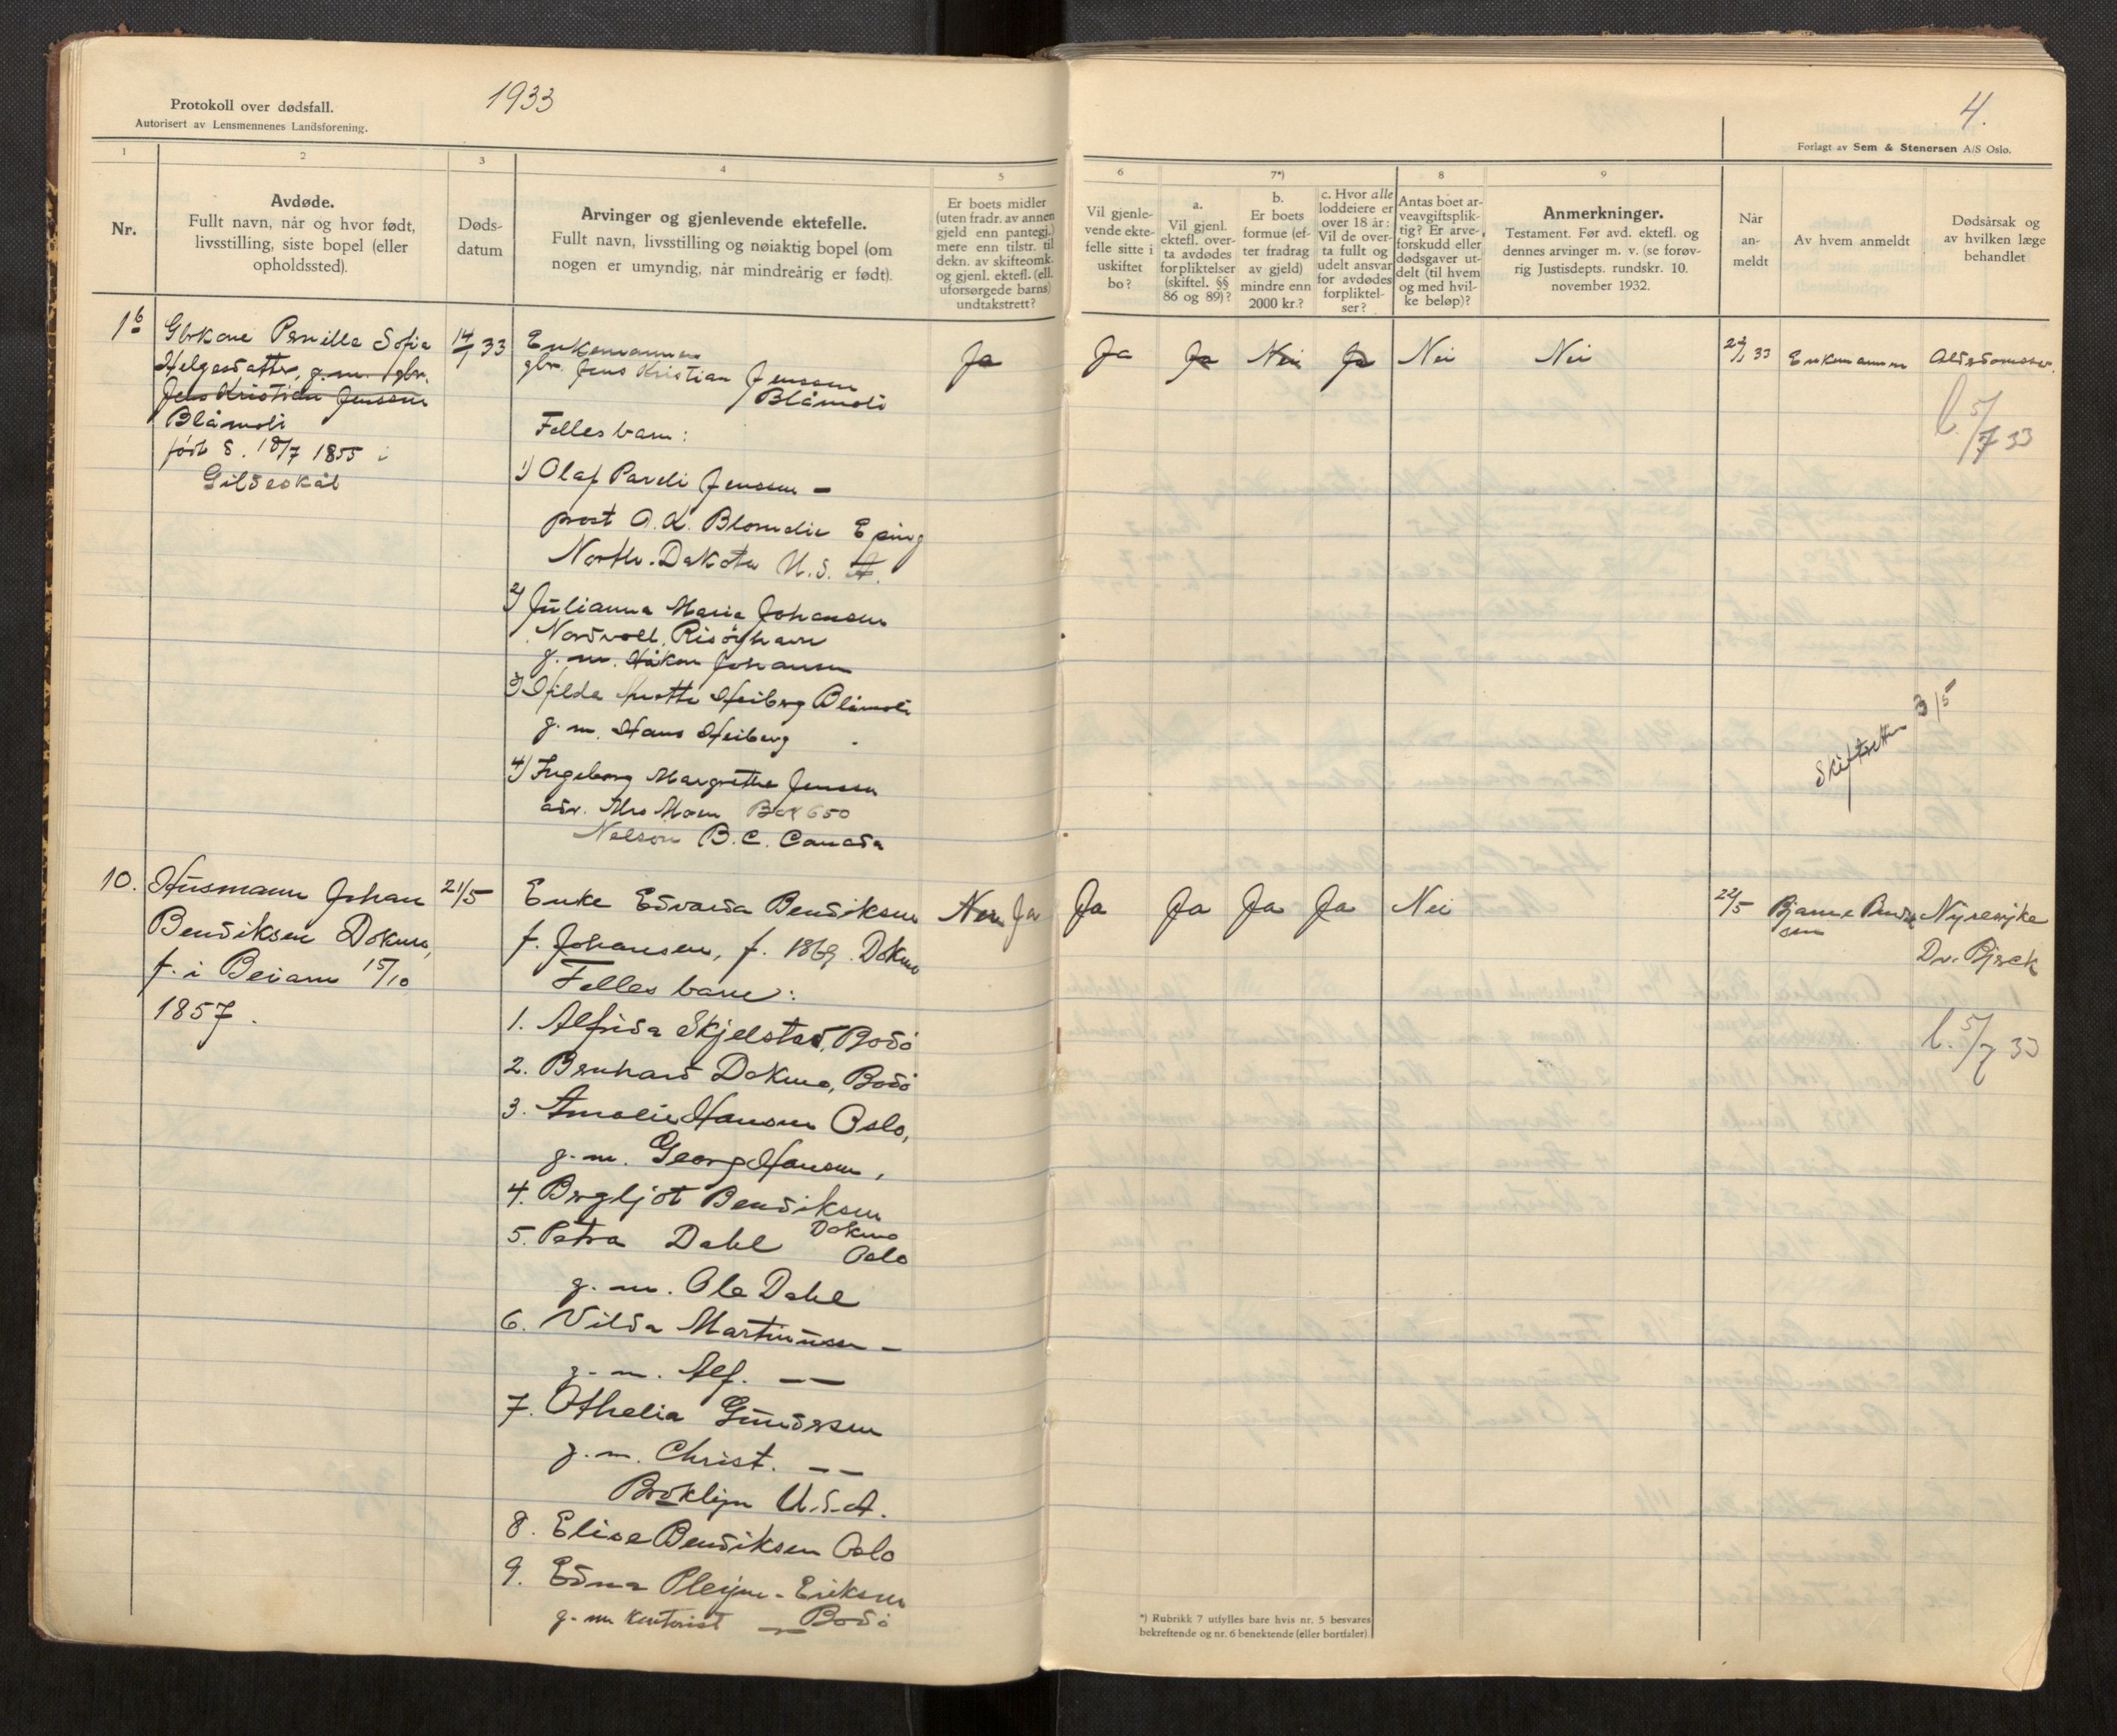 Protokoll over dødsfall.
Autorisert av Lensmennenes Landsforening.
1933
4.
Forlagt av Sem & Stenersen A/S Oslo.
1
2
3
4
5
6
7*)
8
9
Nr.
Avdøde.
Fullt navn, når og hvor født,
livsstilling, siste bopel (eller
opholdssted).
Døds-
datum
Arvinger og gjenlevende ektefelle.
Fullt navn, livsstilling og nøiaktig bopel (om
nogen er umyndig, når mindreårig er født).
Er boets midler
(uten fradr. av annen
gjeld enn pantegj.)
mere enn tilstr. til
dekn. av skifteomk.
og gjenl. ektef. (ell.
uforsørgede barns)
undtakstrett?
Vil gjenle-
vende ekte-
felle sitte i
uskiftet
bo?
a.
Vil gjenl.
ektefl. over-
ta avdødes
forpliktelser
(skiftel. §§
86 og 89)?
b.
Er boets
formue (ef-
ter fradrag
av gjeld)
mindre enn
2000 kr.?
c. Hvor alle
loddeiere er
over 18 år:
Vil de over-
ta fullt og
udelt ansvar
for avdødes
forpliktel-
ser?
Antas boet ar-
veavgiftsplik-
tig? Er arve-
forskudd eller
dødsgaver ut-
delt (til hvem
og med hvil-
ke beløp)?
Anmerkninger.
Testament. Før avd. ektefl. og
dennes arvinger m. v. (se forøv-
rig Justisdepts. rundskr. 10.
november 1932.
Når
an-
meldt
Av hvem anmeldt
Dødsårsak og
av hvilken læge
behandlet
1b
Gbrkone Pernille Sofie
Helgesdatter, g.m. gbr.
Jens Kristian Jenssen
Blåmoli
født d. 18/7 1855 i
Gildeskål
14/1 33
Enkemannen
gbr. Jens Kristian Jenssen
Blåmoli
Felles barn:
1) Olaf Pareli Jenssen -
post O. K. Eping
North-Dakota U.S.A.
2) Julianna Maria Johansen
Nordvoll, Risøyhavn
g. m. Håkon Johansen
3) Hilda Heiberg Blåmoli
g. m. Hans Heiberg
4) Ingeborg Margrethe Jenssen
adr. Mrs Moen Box 650
Nelson B.C. Canada
Ja
Ja
Ja
Nei
Ja
Nei
Nei
33
Enkemannen
Alderdomssv.
l. 5/7 33
Skifteretten 3/5
10.
Husmann Johan
Bendiksen Dokmo,
f. i Beiarn 15/10
1857.
21/5
Enke Edvarda Bendiksen
f. Johansen, f. 1869. Dokmo
Felles barn:
1. Alfrida Skjelstad, Bodø
2. Bernhard Dokmo, Bodø
3. Amalie Hansen Oslo,
g. m. Georg Hansen,
4. Bergljot Bendiksen
Dokmo
5. Petra Dahl Oslo
g. m. Ole Dahl
6. Vilda Martinussen -
g. m. Alf. — —
7. Othelia Gundersen
g. m. Christ. — —
Broklyn U.S.A.
8. Elise Bendiksen Oslo
9. Edna Pleym-Eriksen
g. m. kontorist — Bodø
Nei Ja
Ja
Ja
Ja
Ja
Nei
22/5
Bjarne Bendik
sen
Nyresyke
Dr. Bjrek
l. 5/7 33
*) Rubrikk 7 utfylles bare hvis nr. 5 besvares
bekreftende og nr. 6 benektende (eller bortfaler).